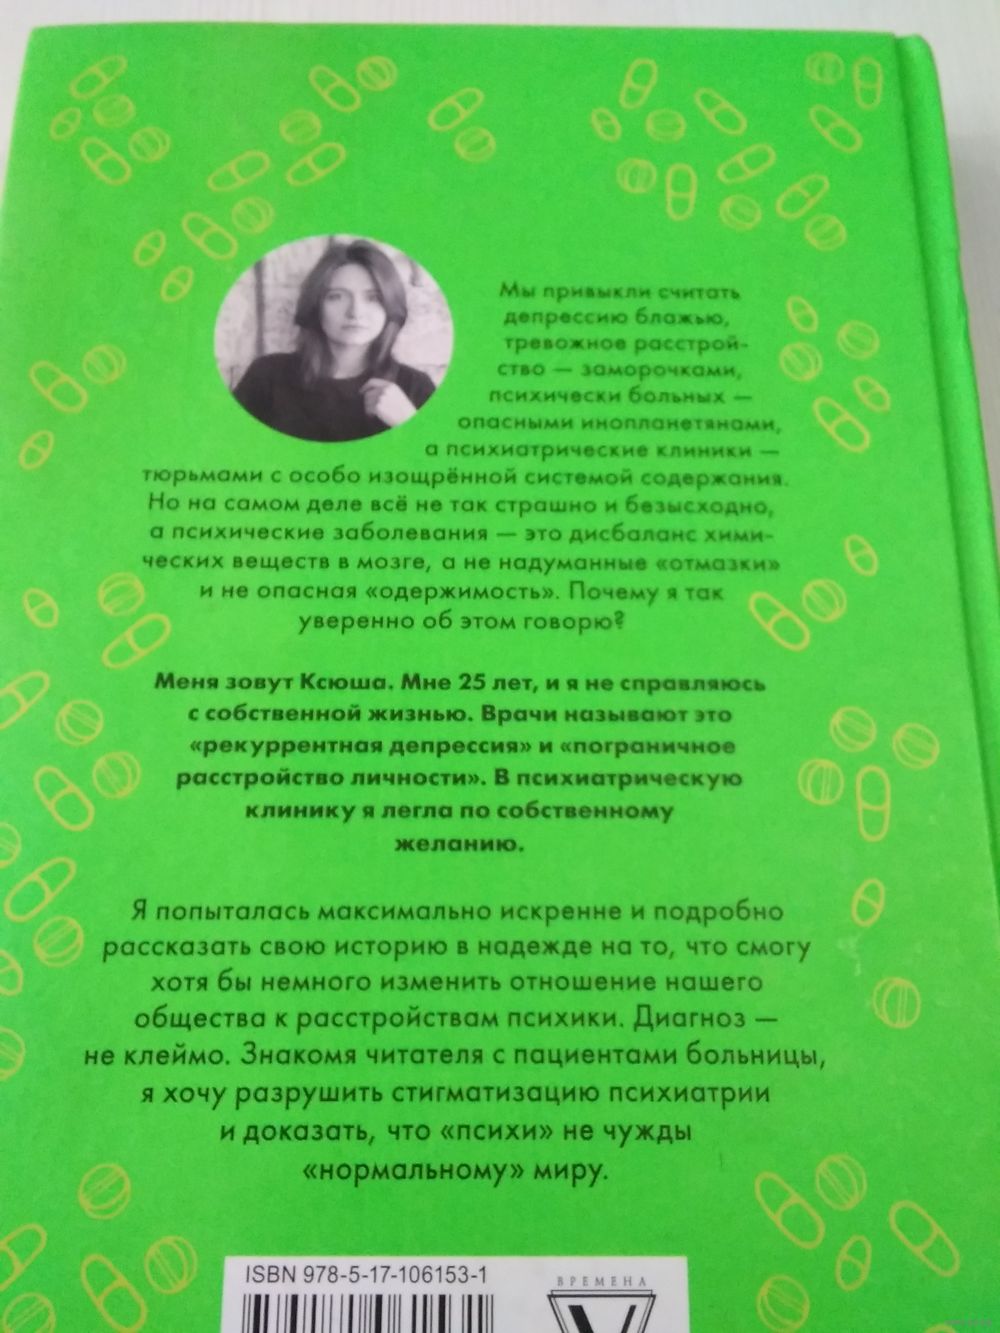 Мы привыкли считать
депрессию блажью,
тревожное расстрой-
ство — заморочками,
психически больных —
опасными инопланетянами,
а психиатрические клиники —
тюрьмами с особо изощрённой системой содержания.
Но на самом деле всё не так страшно и безысходно,
а психические заболевания — это дисбаланс хими-
ческих веществ в мозге, а не надуманные «отмазки»
и не опасная «одержимость». Почему я так
уверенно об этом говорю?
Меня зовут Ксюша. Мне 25 лет, и я не справляюсь
с собственной жизнью. Врачи называют это
«рекуррентная депрессия» и «пограничное
расстройство личности». В психиатрическую
клинику я легла по собственному
желанию.
Я попыталась максимально искренне и подробно
рассказать свою историю в надежде на то, что смогу
хотя бы немного изменить отношение нашего
общества к расстройствам психики. Диагноз —
не клеймо. Знакомя читателя с пациентами больницы,
я хочу разрушить стигматизацию психиатрии
и доказать, что «психи» не чужды
«нормальному» миру.
ISBN 978-5-17-106153-1
ВРЕМЕНА